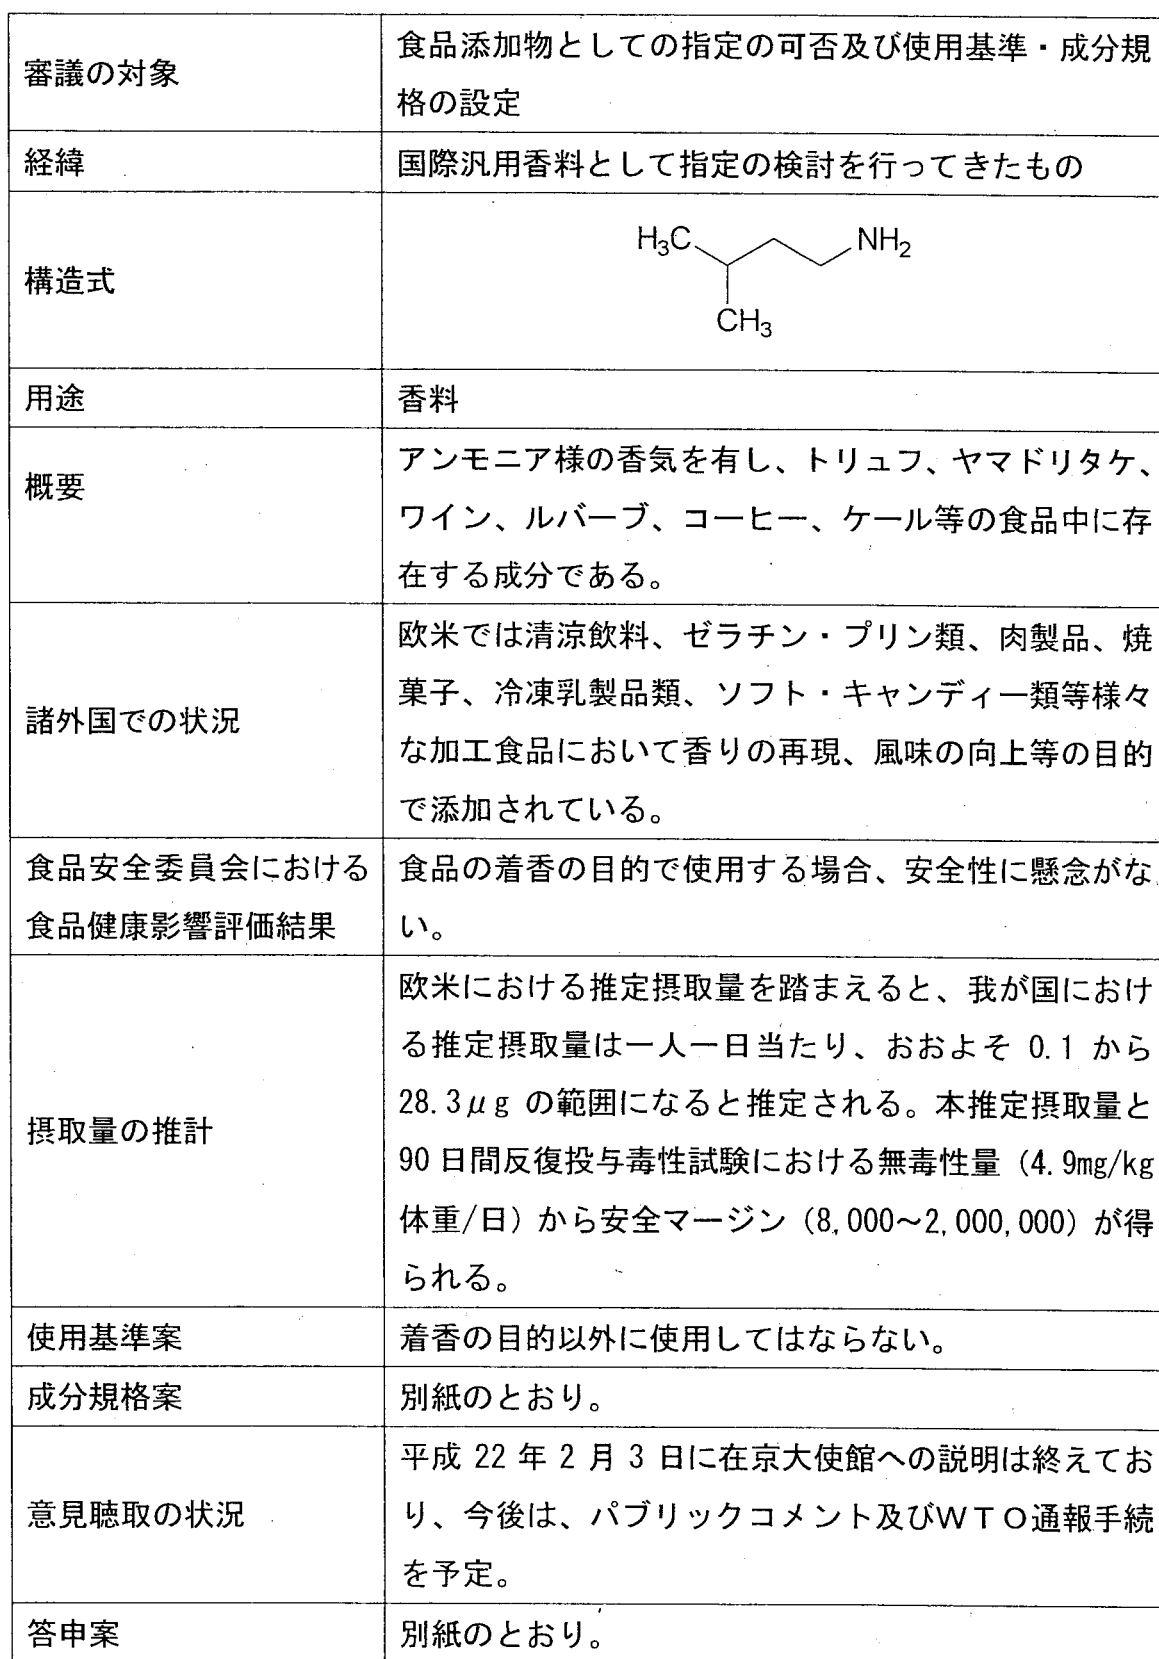 審議の対象
食品添加物としての指定の可否及び使用基準・成分規
格の設定
経緯
国際汎用香料として指定の検討を行ってきたもの
構造式
H₃C
NH₂
CH₃
用途
香料
概要
アンモニア様の香気を有し、トリュフ、ヤマドリタケ、
ワイン、ルバーブ、コーヒー、ケール等の食品中に存
在する成分である。
諸外国での状況
欧米では清涼飲料、ゼラチン・プリン類、肉製品、焼
菓子、冷凍乳製品類、ソフト・キャンディー類等様々
な加工食品において香りの再現、風味の向上等の目的
で添加されている。
食品安全委員会における
食品健康影響評価結果
食品の着香の目的で使用する場合、安全性に懸念がな
い。
摂取量の推計
欧米における推定摂取量を踏まえると、我が国におけ
る推定摂取量は一人一日当たり、おおよそ 0.1 から
28.3μg の範囲になると推定される。本推定摂取量と
90 日間反復投与毒性試験における無毒性量（4.9mg/kg
体重/日）から安全マージン（8,000～2,000,000）が得
られる。
使用基準案
着香の目的以外に使用してはならない。
成分規格案
別紙のとおり。
意見聴取の状況
平成 22 年 2 月 3 日に在京大使館への説明は終えてお
り、今後は、パブリックコメント及びＷＴＯ通報手続
を予定。
答申案
別紙のとおり。